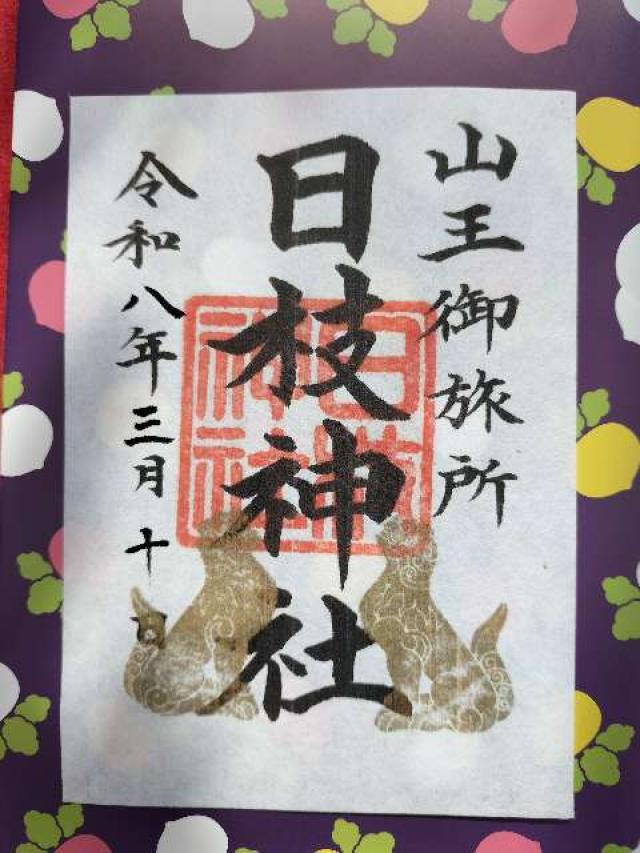 山王御旅所
日枝神社
令和八年三月十日